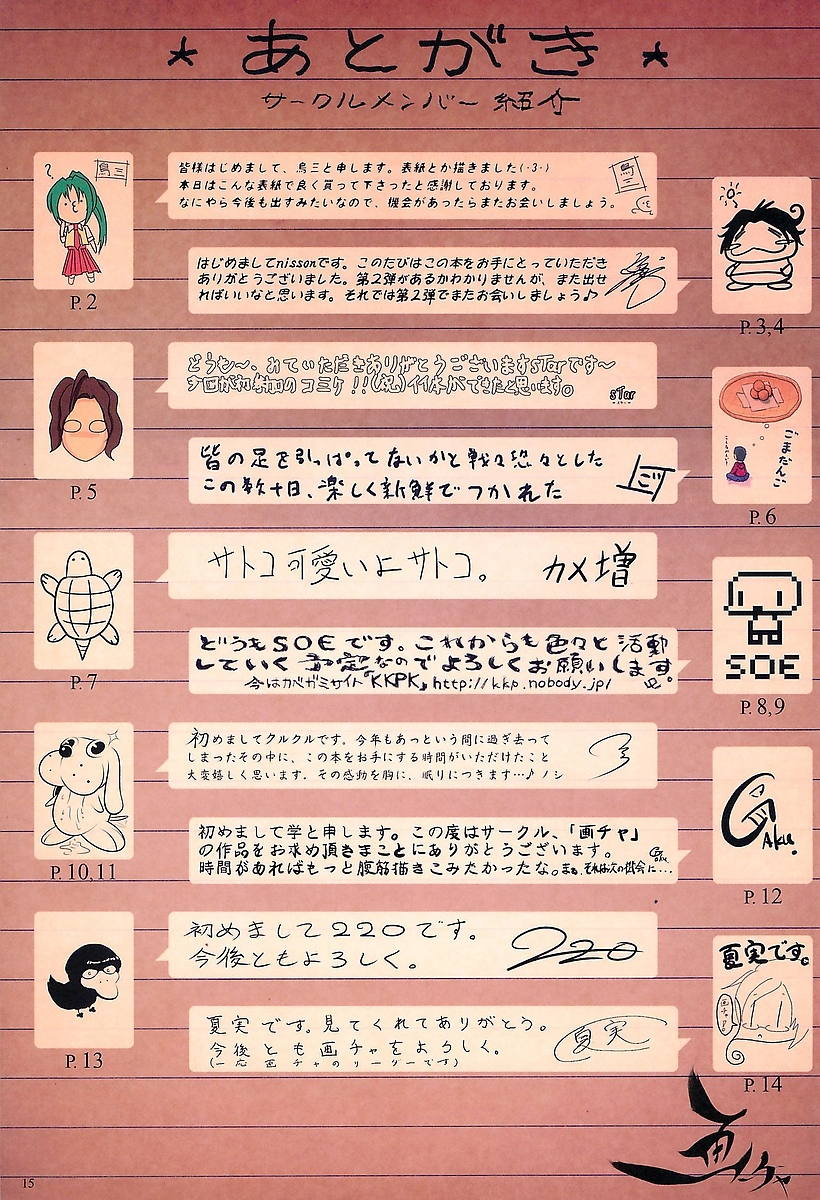 ★ あとがき ★
サークルメンバー 紹介
?
鳥三
P.2
皆様はじめまして、鳥三と申します。表紙とか描きました(・3・)
本日はこんな表紙で良く買って下さったと感謝しております。
なにやら今後も出すみたいなので、機会があったらまたお会いしましょう。
鳥三
はじめましてnissonです。このたびはこの本をお手にとっていただき
ありがとうございました。第2弾があるかわかりませんが、また出せ
ればいいなと思います。それでは第2弾でまたお会いしましょう♪
P.3,4
P.5
どうも〜、みていただきありがとうございますsTarです〜
今回が初参加のコミケ!!(祝)イイ本ができたと思います。
sTar
皆の足を引っぱってないかと戦々恐々とした
この数十日、楽しく新鮮でつかれた
ごまだんご
P.6
P.7
サトコ可愛いよサトコ。 カメ増
どうもSOEです。これからも色々と活動
していく予定なのでよろしくお願いします。
今はカベガミサイト「KKPK」http://kkp.nobody.jp/
SOE
P.8,9
P.10,11
初めましてクルクルです。今年もあっという間に過ぎ去って
しまったその中に、この本をお手にする時間がいただけたこと
大変嬉しく思います。その感動を胸に、眠りにつきます…♪ノシ
初めまして学と申します。この度はサークル、「画チャ」
の作品をお求め頂きまことにありがとうございます。
時間があればもっと腹筋描きこみたかったな。まぁ、それは次の機会に...
Gaku
GAku.
P.12
P.13
初めまして220です。
今後ともよろしく。
220
夏実です。見てくれてありがとう。
今後とも画チャをよろしく。
(一応画チャのリーダーです)
夏実
夏実です。
画チャ
P.14
画チャ
15